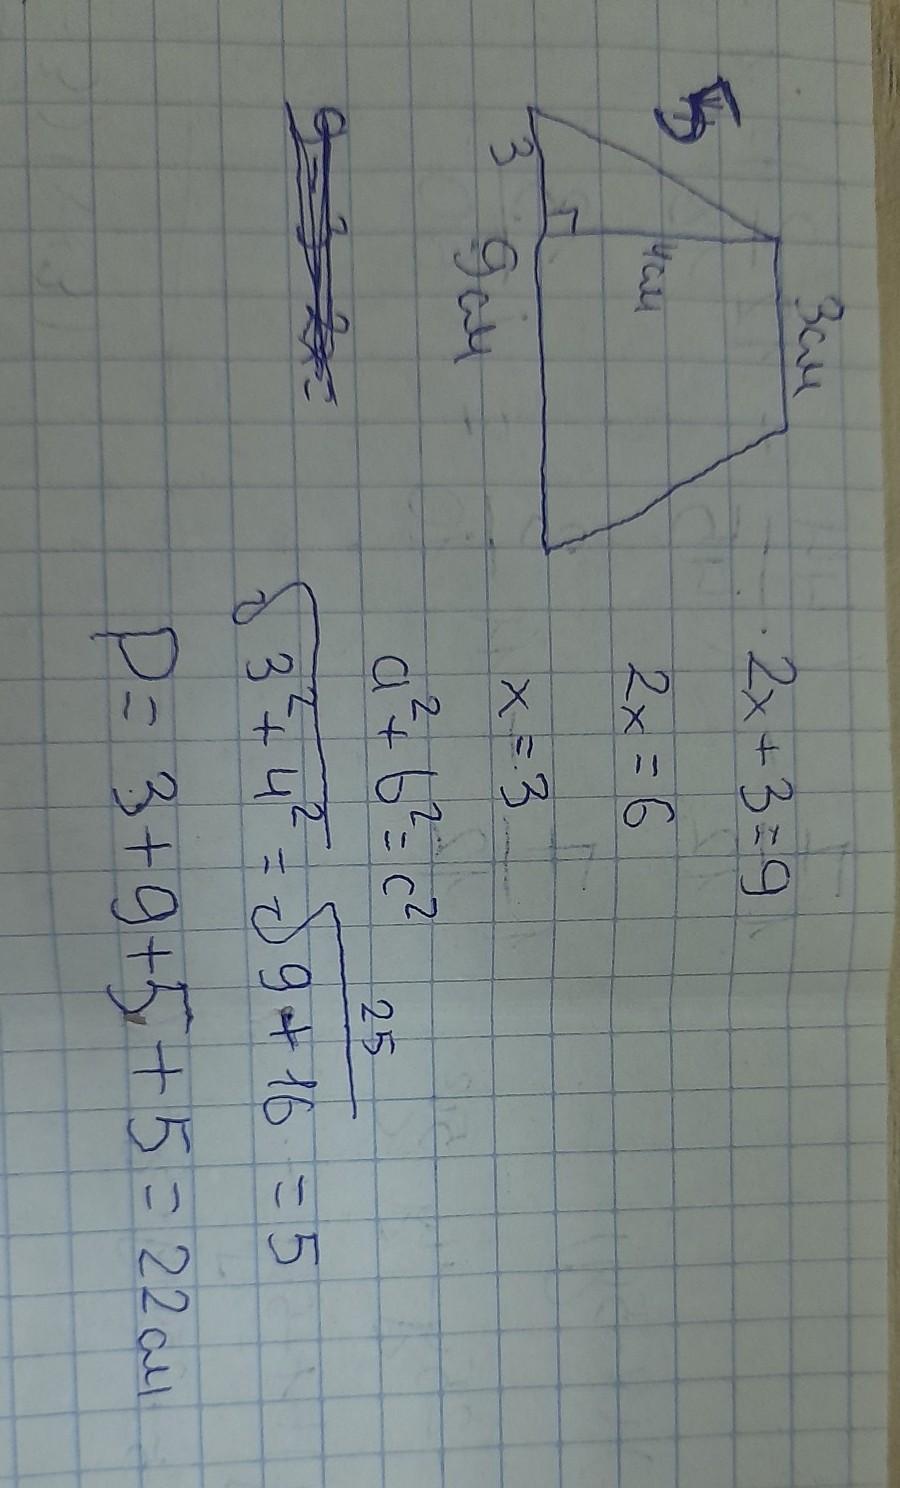 3см
5
4см
3
9см
2x + 3 = 9
2x = 6
x = 3
a² + b² = c²
√3² + 4² = √9 + 16 = 5
25
P = 3 + 9 + 5 + 5 = 22см